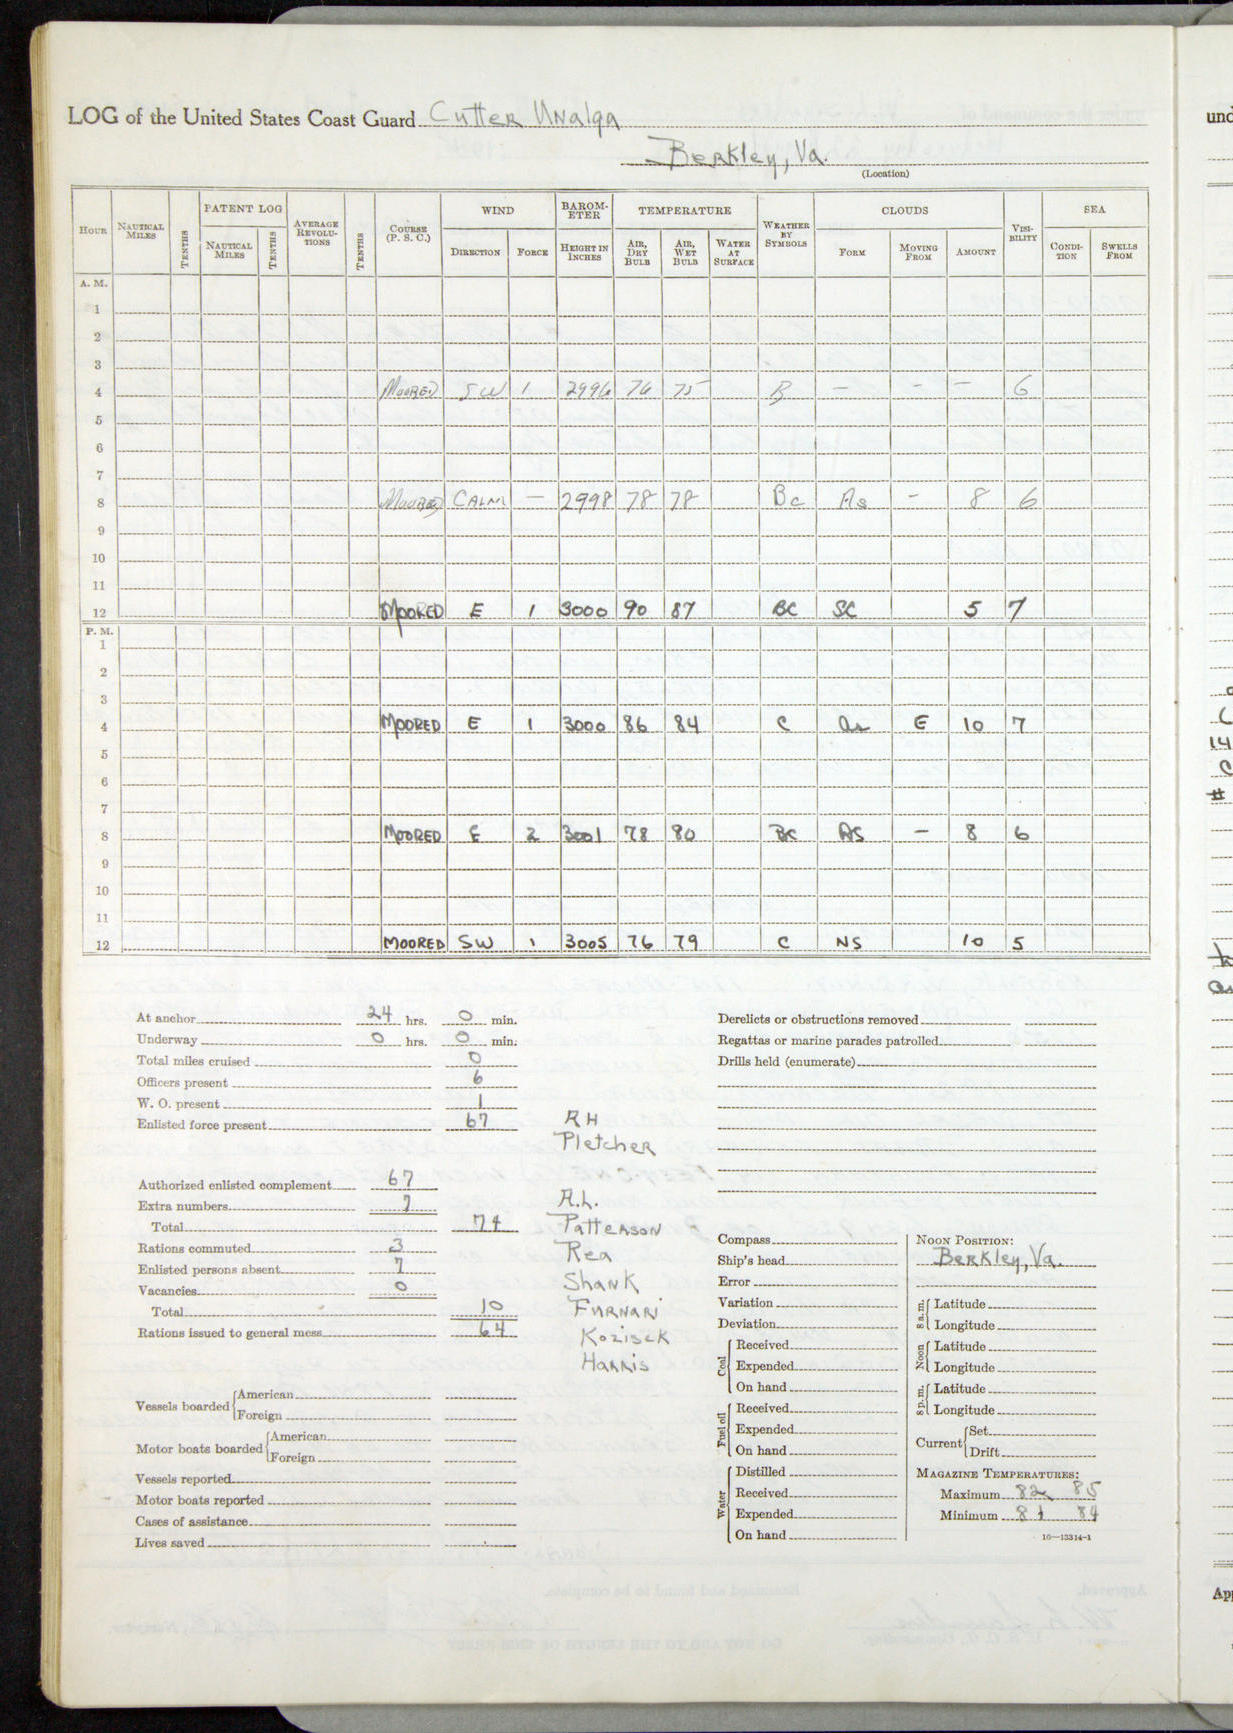 LOG of the United States Coast Guard Cutter Unalga
Berkley, Va.
(Location)
HOUR NAUTICAL MILES TENTHS PATENT LOG NAUTICAL MILES TENTHS AVERAGE REVOLU-TIONS TENTHS COURSE (P. S. C.) WIND DIRECTION FORCE BAROM-ETER HEIGHT IN INCHES TEMPERATURE AIR, DRY BULB AIR, WET BULB WATER AT SURFACE WEATHER BY SYMBOLS CLOUDS FORM MOVING FROM AMOUNT VISI-BILITY SEA CONDI-TION SWELLS FROM
A. M.
1
2
3
4 MOORED SW 1 2996 76 75 B — - — 6
5
6
7
8 MOORED CALM — 2998 78 78 Bc As - 8 6
9
10
11
12 MOORED E 1 3000 90 87 BC SC 5 7
P. M.
1
2
3
4 MOORED E 1 3000 86 84 C E 10 7
5
6
7
8 MOORED E 2 3001 78 80 BC AS — 8 6
9
10
11
12 MOORED SW 1 3005 76 79 C NS 10 5
At anchor 24 hrs. 0 min.
Underway 0 hrs. 0 min.
Total miles cruised 0
Officers present 6
W. O. present 1
Enlisted force present 67
RH
Pletcher
Authorized enlisted complement 67
Extra numbers 7
Total 74
Rations commuted 3
Enlisted persons absent 7
Vacancies 0
Total 10
Rations issued to general mess 64
R.L.
Patterson
Rea
Shank
Furnari
Kozisek
Harris
Vessels boarded American
Foreign
Motor boats boarded American
Foreign
Vessels reported
Motor boats reported
Cases of assistance
Lives saved
Derelicts or obstructions removed
Regattas or marine parades patrolled
Drills held (enumerate)
Compass
Ship's head
Error
Variation
Deviation
Coal
Received
Expended
On hand
Fuel oil
Received
Expended
On hand
Water
Distilled
Received
Expended
On hand
NOON POSITION:
Berkley, Va.
8 a.m. Latitude
Longitude
Noon Latitude
Longitude
8 p.m. Latitude
Longitude
Current Set
Drift
MAGAZINE TEMPERATURES:
Maximum 82 85
Minimum 81 84
16—13314-1